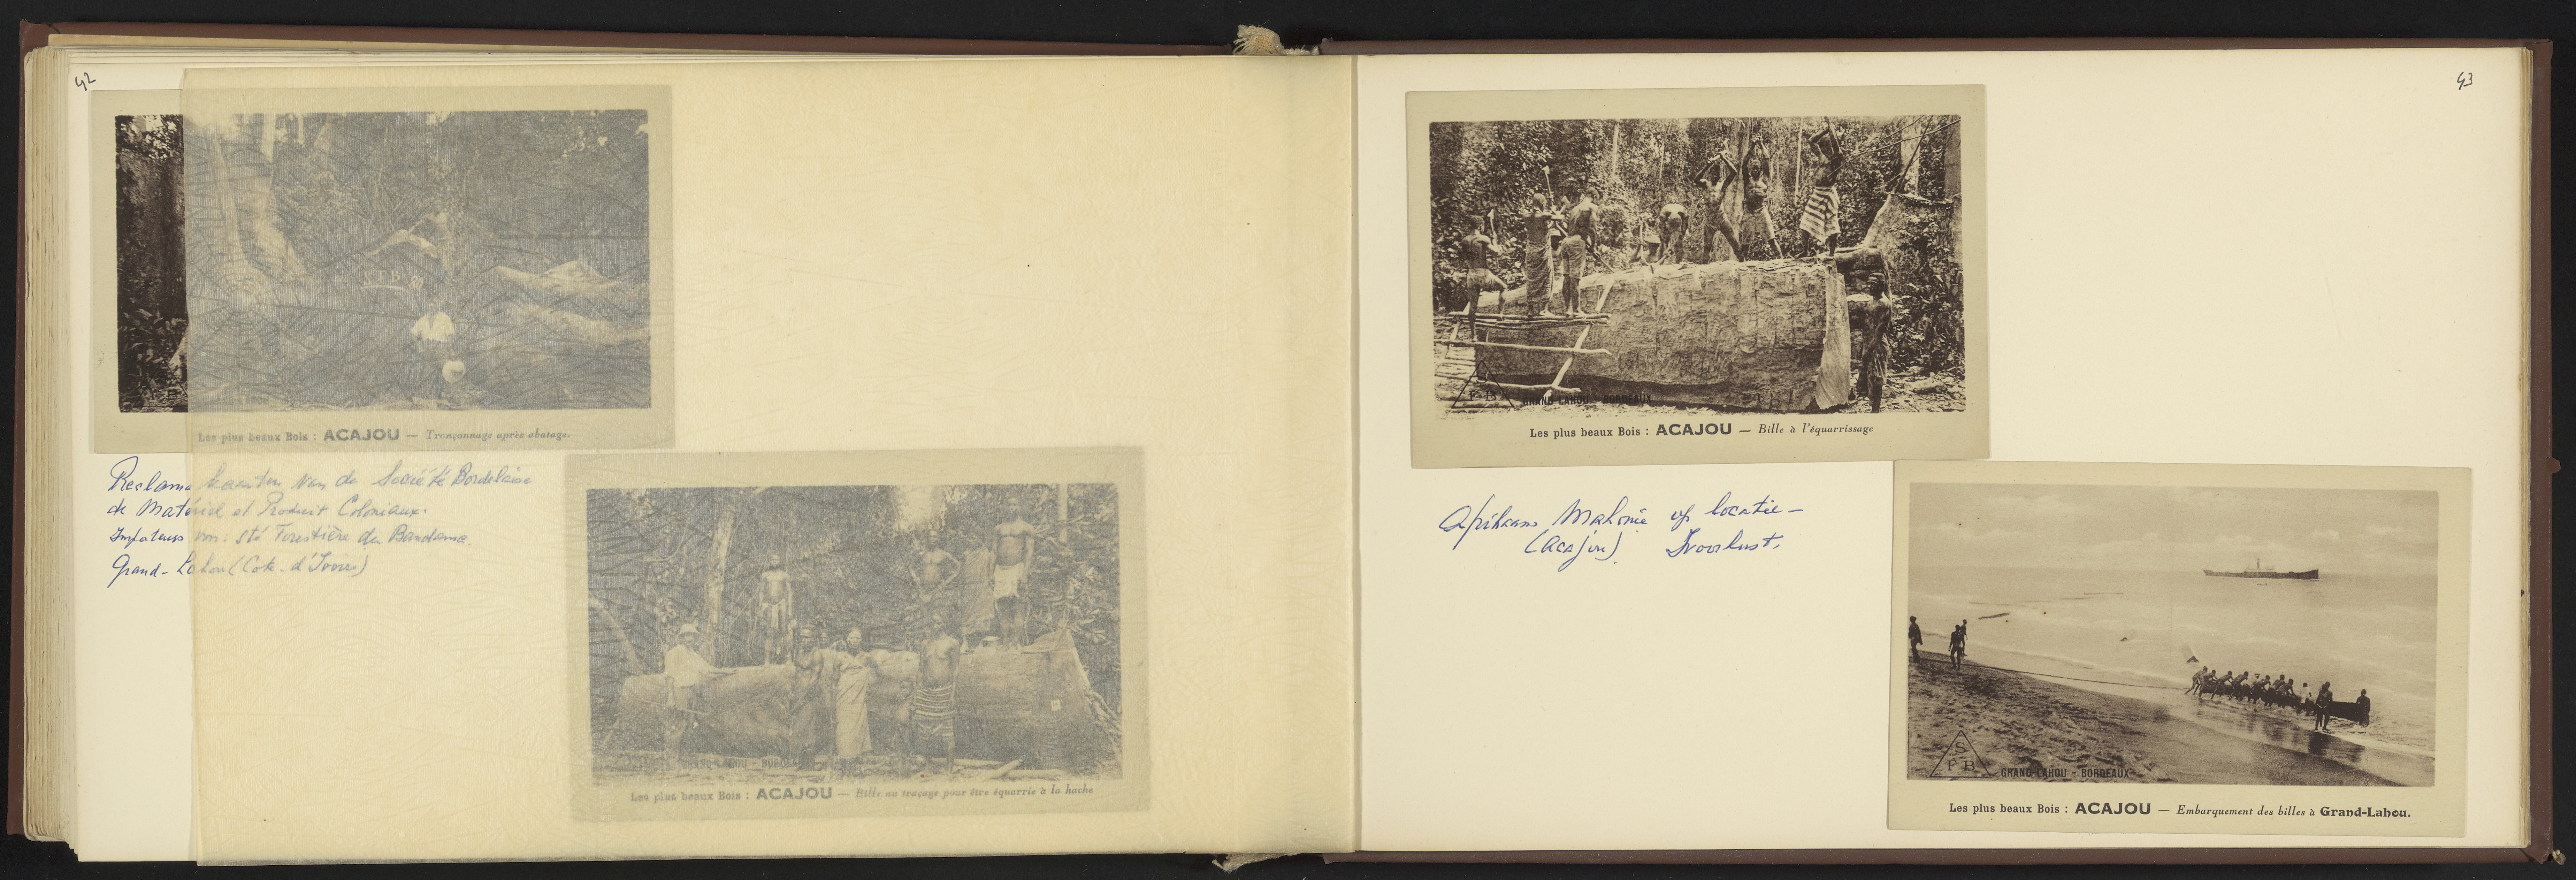 42
S.F.B. 80
Les plus beaux Bois : ACAJOU — Tronçonnage après abatage.
Reclame kaarten van de Société Bordelaise
de Matériel et Produit Coloniaux.
Importeurs van: Sté Forestière du Bandama.
Grand-Lahou (Cote-d'Ivoire)
GRAND-LAHOU - BORDEAUX
Les plus beaux Bois : ACAJOU — Bille au traçage pour être équarrie à la hache
43
F B
GRAND-LAHOU - BORDEAUX
Les plus beaux Bois : ACAJOU — Bille à l'équarrissage
Afrikaans Mahonie op locatie —
(Acajou). Ivoorkust.
S
F B
GRAND-LAHOU - BORDEAUX
Les plus beaux Bois : ACAJOU — Embarquement des billes à Grand-Lahou.